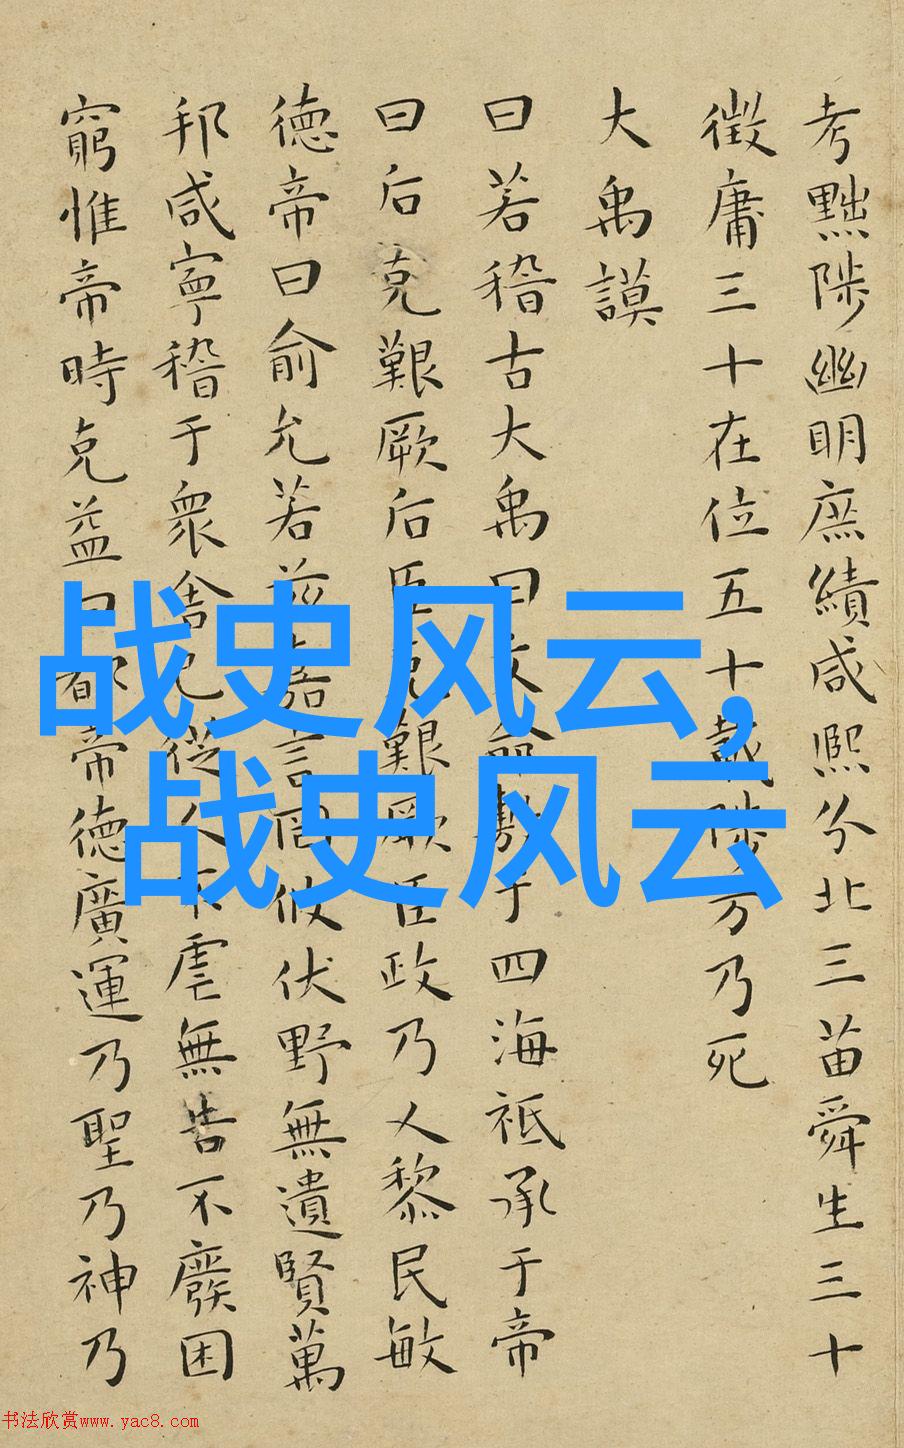 考黜陟幽明庶績咸熙分北三苗舜生三十
徵庸三十在位五十載陟方乃死
大禹謨
曰若稽古大禹曰文命敷于四海祗承于帝
曰后克艱厥后臣克艱厥臣政乃乂黎民敏
德帝曰俞允若茲嘉言罔攸伏野無遺賢萬
邦咸寧稽于衆舍己從人不虐無告不廢困
窮惟帝時克益曰都帝德廣運乃聖乃神乃
战史风云,
战史风云
书法欣赏www.yac8.com